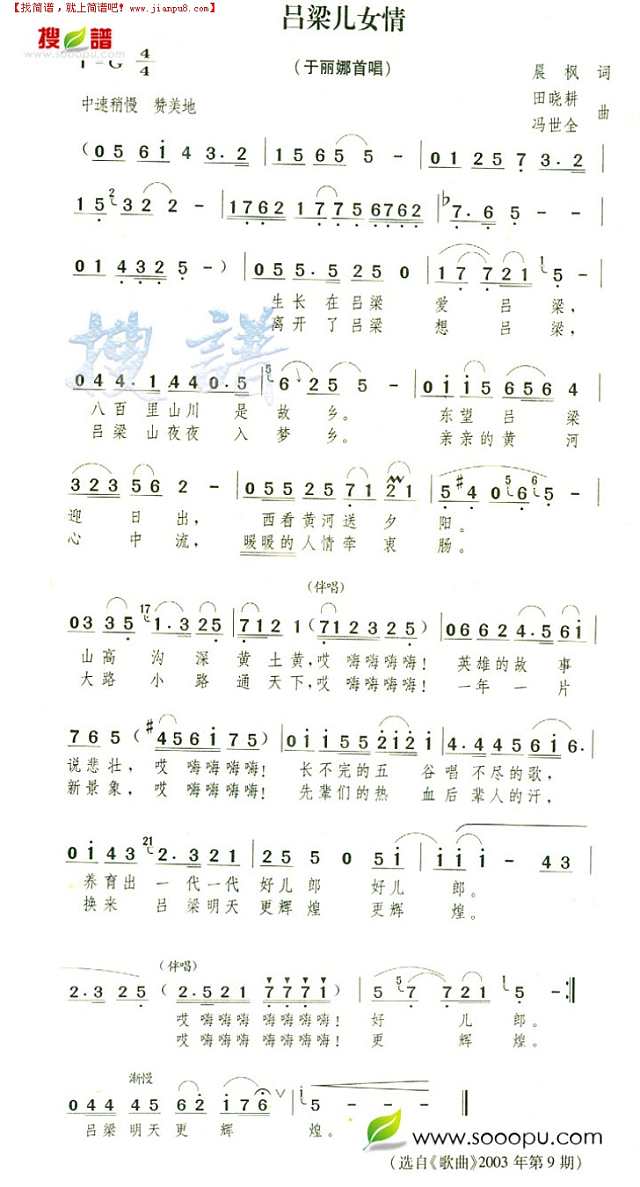 【找简谱，就上简谱吧！www.jianpu8.com】
搜谱
吕梁儿女情
1=G 4/4
（于丽娜首唱）
晨枫 词
田晓耕
冯世全 曲
中速稍慢 赞美地
(0 5 6 1 4 3.2 | 1 5 6 5 5 - | 0 1 2 5 7 3.2 |
1 5 2 3 2 2 - | 1 7 6 2 1 7 7 5 6 7 6 2 | ♭7.6 5 - - |
0 1 4 3 2 5 - ) | 0 5 5.5 2 5 0 | 1 7 7 2 1 1 5 - |
生长在吕梁 爱吕梁，
离开了吕梁 想吕梁，
搜谱
0 4 4.1 4 4 0.5 | 5 6 2 5 5 - | 0 1 1 5 6 5 6 4 |
八百里山川 是故乡。 东望吕梁
吕梁山夜夜 入梦乡。 亲亲的黄河
3 2 3 5 6 2 - | 0 5 5 2 5 7 1 2 1 | 5 #4 0 5 6 5 5 - |
迎日出， 西看黄河送夕阳。
心中流， 暖暖的人情牵衷肠。
（伴唱）
0 3 3 5 17 1.3 2 5 | 7 1 2 1 (7 1 2 3 2 5) | 0 6 6 2 4.5 6 1 |
山高沟深 黄土黄，哎 嗨嗨嗨嗨！ 英雄的故事
大路小路 通天下，哎 嗨嗨嗨嗨！ 一年一片
7 6 5 ( #4 5 6 1 7 5) | 0 1 1 5 5 2 1 2 1 | 4.4 4 5 6 1 6. |
说悲壮，哎 嗨嗨嗨嗨！ 长不完的五谷唱不尽的歌，
新景象，哎 嗨嗨嗨嗨！ 先辈们的热血后辈人的汗，
0 1 4 3 21 2.3 2 1 | 2 5 5 0 5 1 | 1 1 1 - 4 3 |
养育出一代一代 好儿郎 好儿郎。
换来吕梁明天 更辉煌 更辉煌。
（伴唱）
2.3 2 5 ( 2.5 2 1 7 7 7 1) | 5 5 7 7 2 1 1 5 - :||
哎嗨嗨嗨嗨嗨嗨嗨！ 好儿郎。
哎嗨嗨嗨嗨嗨嗨嗨！ 更辉煌。
渐慢
0 4 4 4 5 6 2 1 7 6 ∨ | 1 5 - - - ||
吕梁明天更辉煌。
www.sooopu.com
（选自《歌曲》2003年第9期）